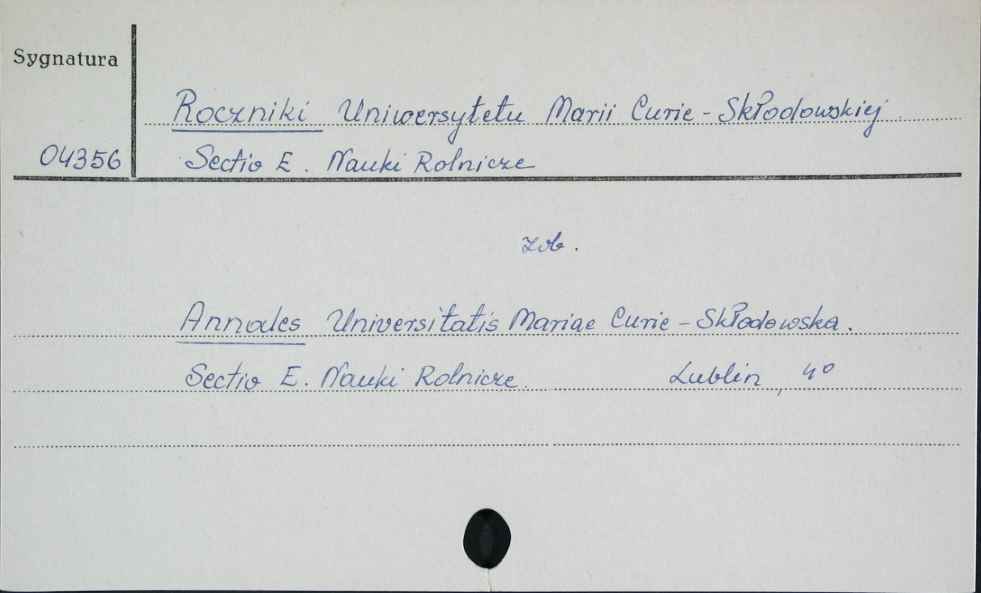 Sygnatura
Roczniki Uniwersytetu Marii Curie - Skłodowskiej.
04356 Sectio E. Nauki Rolnicze
zob.
Annales Universitatis Mariae Curie - Skłodowska.
Sectio E. Nauki Rolnicze. Lublin, 4°